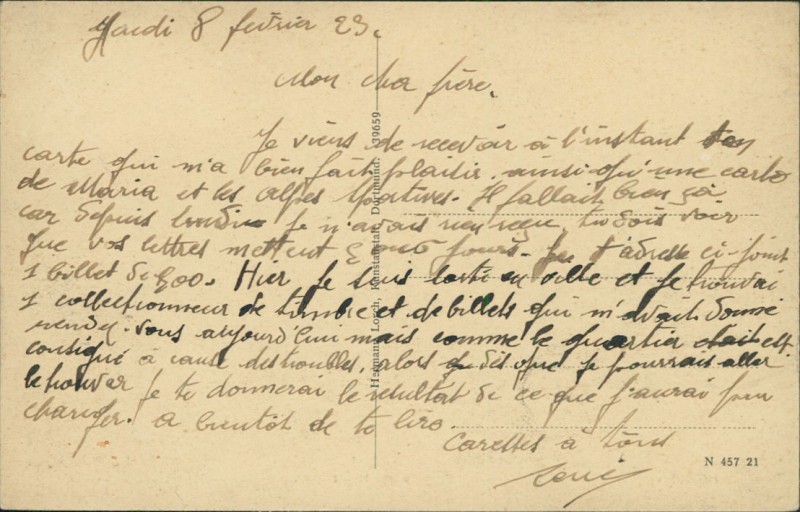 Mardi 8 février 23.
Mon cher frère,
Je viens de recevoir à l'instant ton
carte qui m'a bien fait plaisir, ainsi qu'une carte
de Maria et les Alpes Sportives. Il fallait bien ça
car depuis lundi je n'avais rien reçu, tu dois voir
que vos lettres mettent jours. Je t'adresse ci-joint
1 billet de 500. Hier je suis sorti en ville et je trouvai
1 collectionneur de timbre et de billets qui m'avait donné
rendez-vous aujourd'hui mais comme le quartier était est
consigné à cause des troubles, alors dès que je pourrais aller
le trouver je te donnerai le résultat de ce que j'aurai pu
changer. A bientôt de te lire.
Caresses à tous
Hermann Lorch, Kunstanstalt, Dortmund. 139659
N 457 21